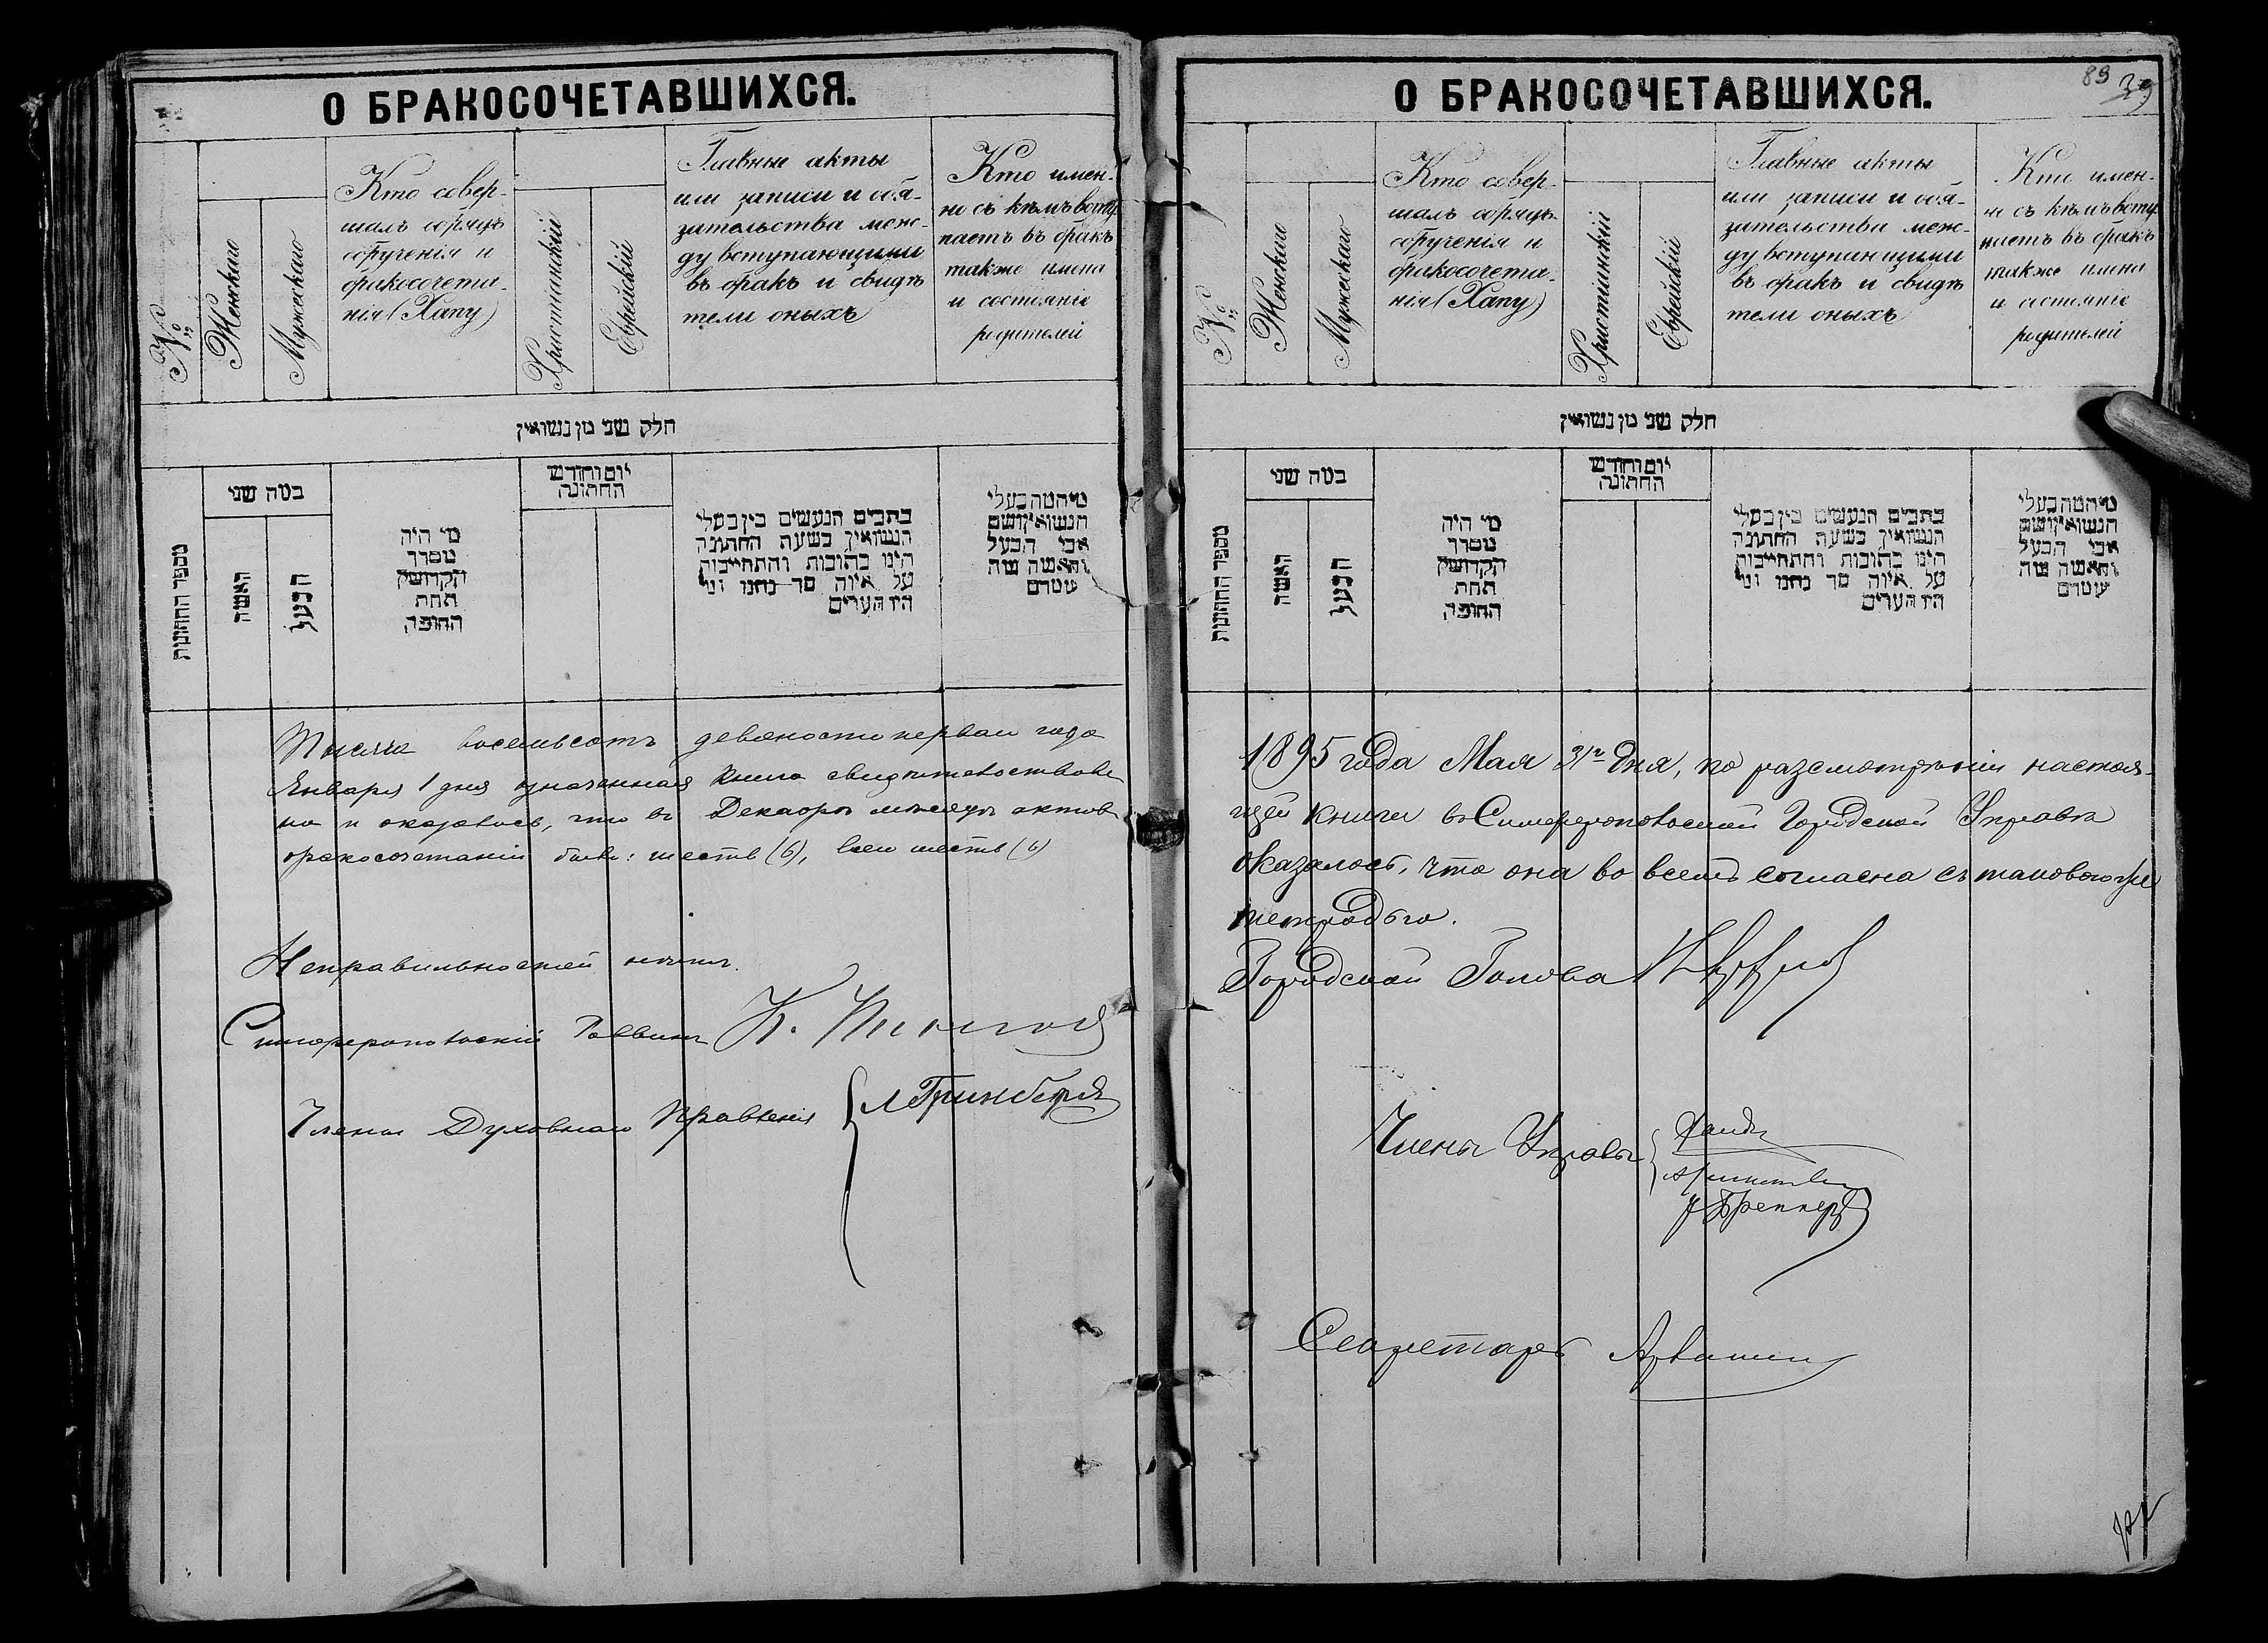 О БРАКОСОЧЕТАВШИХСЯ.
№
Женскаго
Мужескаго
Кто совер-
шалъ обрядъ
обрученія и
бракосочета-
нія (Хапу)
Христіанскій
Еврейскій
Главные акты
или записи и обя-
зательства меж-
ду вступающими
въ бракъ и свидѣ
тели оныхъ
Кто имен-
но съ кѣмъ всту
паетъ въ бракъ
также имена
и состояніе
родителей
חלק שני מן נשואין
מספר החתונות
כמה שני
האשה
הבעל
מי היה
מסדר
הקדושין
תחת
החופה
יום וחודש
החתונה
כתבים הנעשים בין בעלי
הנשואין בשעת החתונה
היינו כתובות והתחייבות
על איזה סך נתנו ומי
היו העדים
מי המה בעלי
הנשואין ושם
אבי הבעל
והאשה ומה
עומדם
Тысяча восемьсотъ девяносто перваго года
Января 1 дня означенная книга свидѣтельствова
на и оказалось, что въ Декабрѣ мѣсяцѣ актовъ
бракосочетанія было: шесть (6), всего шесть (6)
Неправильностей нѣтъ.
Симферопольскій Раввинъ К.
Члены Духовнаго Правленія Л Гринбергъ
О БРАКОСОЧЕТАВШИХСЯ.
89 39
№
Женскаго
Мужескаго
Кто совер-
шалъ обрядъ
обрученія и
бракосочета-
нія (Хапу)
Христіанскій
Еврейскій
Главные акты
или записи и обя-
зательства меж-
ду вступающими
въ бракъ и свидѣ
тели оныхъ
Кто имен-
но съ кѣмъ всту
паетъ въ бракъ
также имена
и состояніе
родителей
חלק שני מן נשואין
מספר החתונות
כמה שני
האשה
הבעל
מי היה
מסדר
הקדושין
תחת
החופה
יום וחודש
החתונה
כתבים הנעשים בין בעלי
הנשואין בשעת החתונה
היינו כתובות והתחייבות
על איזה סך נתנו ומי
היו העדים
מי המה בעלי
הנשואין ושם
אבי הבעל
והאשה ומה
עומדם
1895 года Мая 31го дня, по разсмотрѣніи настоя-
щей книги въ Симферопольской Городской Управѣ
оказалось, что она во всемъ согласна съ таковою же
тетрадью.
Городской Голова
Члены Управы
Секретарь